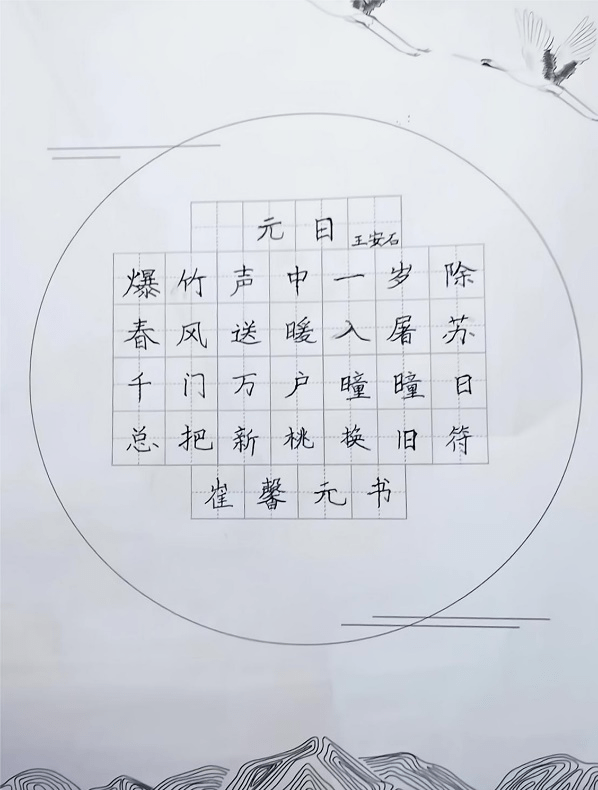 元日
王安石
爆竹声中一岁除
春风送暖入屠苏
千门万户瞳瞳日
总把新桃换旧符
崔馨元书